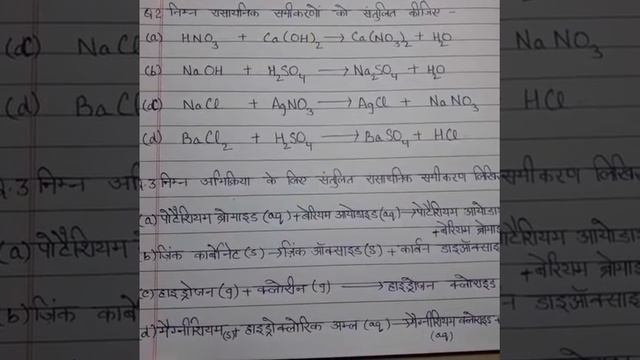 Q.2 निम्न रासायनिक समीकरणों को संतुलित कीजिए -
(a) HNO₃ + Ca(OH)₂ → Ca(NO₃)₂ + H₂O
(b) NaOH + H₂SO₄ → Na₂SO₄ + H₂O
(c) NaCl + AgNO₃ → AgCl + NaNO₃
(d) BaCl₂ + H₂SO₄ → BaSO₄ + HCl
3 निम्न अभिक्रिया के लिए संतुलित रासायनिक समीकरण लिखि
(a) पोटैशियम ब्रोमाइड (aq) + बेरियम आयोडाइड (aq) → पोटैशियम आयोडा
+ बेरियम ब्रोमा
(b) ज़िंक कार्बोनेट (s) → ज़िंक ऑक्साइड (s) + कार्बन डाइऑक्सा
(c) हाइड्रोजन (g) + क्लोरीन (g) → हाइड्रोजन क्लोराइड
d) मैग्नीशियम (s) + हाइड्रोक्लोरिक अम्ल (aq) → मैग्नीशियम क्लोराइड +
(aq)